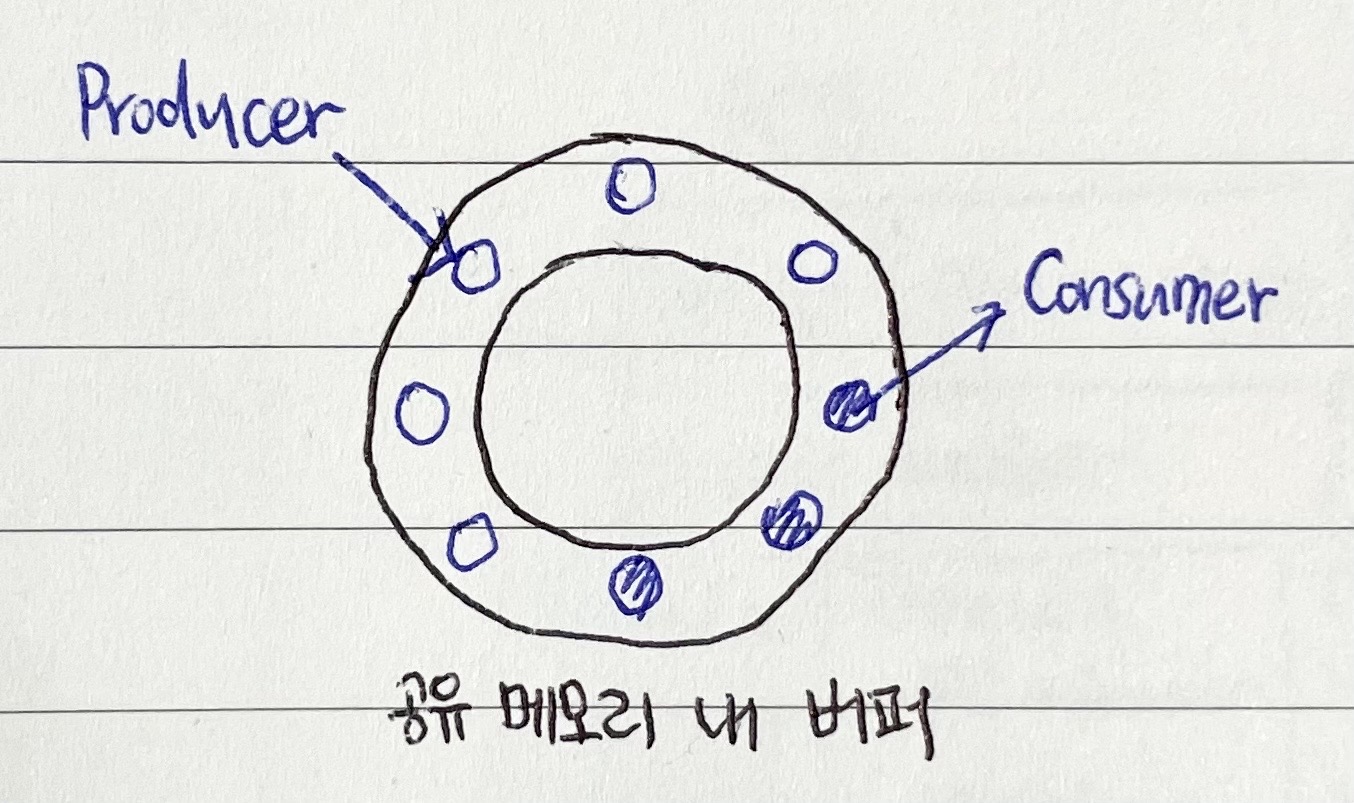 Producer
Consumer
공유 메모리 내 버퍼